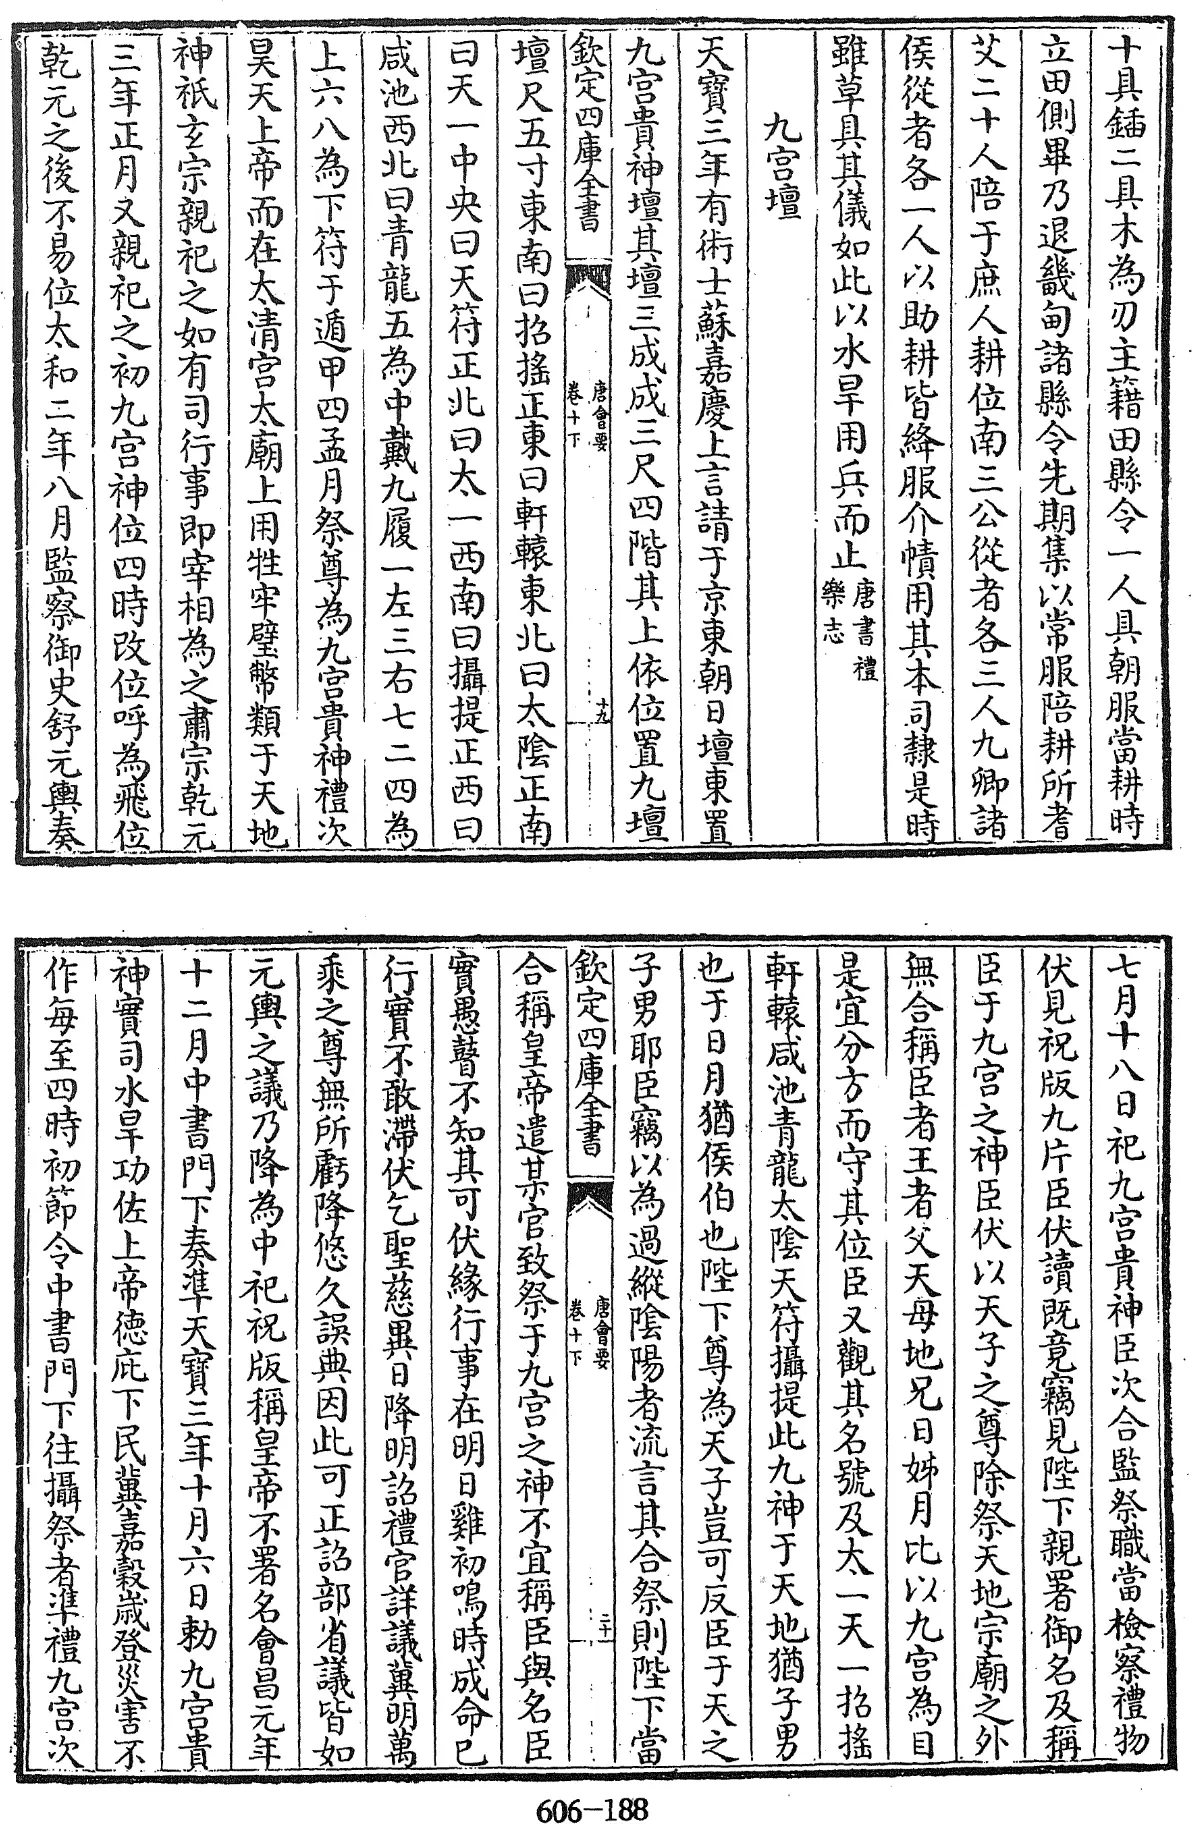 十具鍤二具木為刃主籍田縣令一人具朝服當耕時
立田側畢乃退畿甸諸縣令先期集以常服陪耕所耆
艾二十人陪于庶人耕位南三公從者各三人九卿諸
侯從者各一人以助耕皆絳服介幘用其本司隸是時
雖草具其儀如此以水旱用兵而止唐書禮樂志
九宫壇
天寶三年有術士蘇嘉慶上言請于京東朝日壇東置
九宫貴神壇其壇三成成三尺四階其上依位置九壇
欽定四庫全書
唐會要
卷十下
十九
壇尺五寸東南曰招搖正東曰軒轅東北曰太隂正南
曰天一中央曰天符正北曰太一西南曰攝提正西曰
咸池西北曰青龍五為中戴九履一左三右七二四為
上六八為下符于遁甲四孟月祭尊為九宫貴神禮次
昊天上帝而在太清宫太廟上用牲牢璧幣類于天地
神祇玄宗親祀之如有司行事即宰相為之肅宗乾元
三年正月又親祀之初九宫神位四時改位呼為飛位
乾元之後不易位太和二年八月監察御史舒元輿奏
七月十八日祀九宫貴神臣次合監祭職當檢察禮物
伏見祝版九片臣伏讀既竟竊見陛下親署御名及稱
臣于九宫之神臣伏以天子之尊除祭天地宗廟之外
無合稱臣者王者父天母地兄日姊月比以九宫為目
是宜分方而守其位臣又觀其名號及太一天一招搖
軒轅咸池青龍太隂天符攝提此九神于天地猶子男
也于日月猶侯伯也陛下尊為天子豈可反臣于天之
子男耶臣竊以為過縱隂陽者流言其合祭則陛下當
欽定四庫全書
唐會要
卷十下
二十
合稱皇帝遣某官致祭于九宫之神不宜稱臣與名臣
實愚瞽不知其可伏緣行事在明日雞初鳴時成命已
行實不敢滯伏乞聖慈異日降明詔禮官詳議冀明萬
乘之尊無所虧降悠久誤典因此可正詔部省議皆如
元輿之議乃降為中祀祝版稱皇帝不署名會昌元年
十二月中書門下奏準天寶三年十月六日勅九宫貴
神實司水旱功佐上帝徳庇下民冀嘉穀歲登災害不
作每至四時初節令中書門下往攝祭者準禮九宫次
606-188